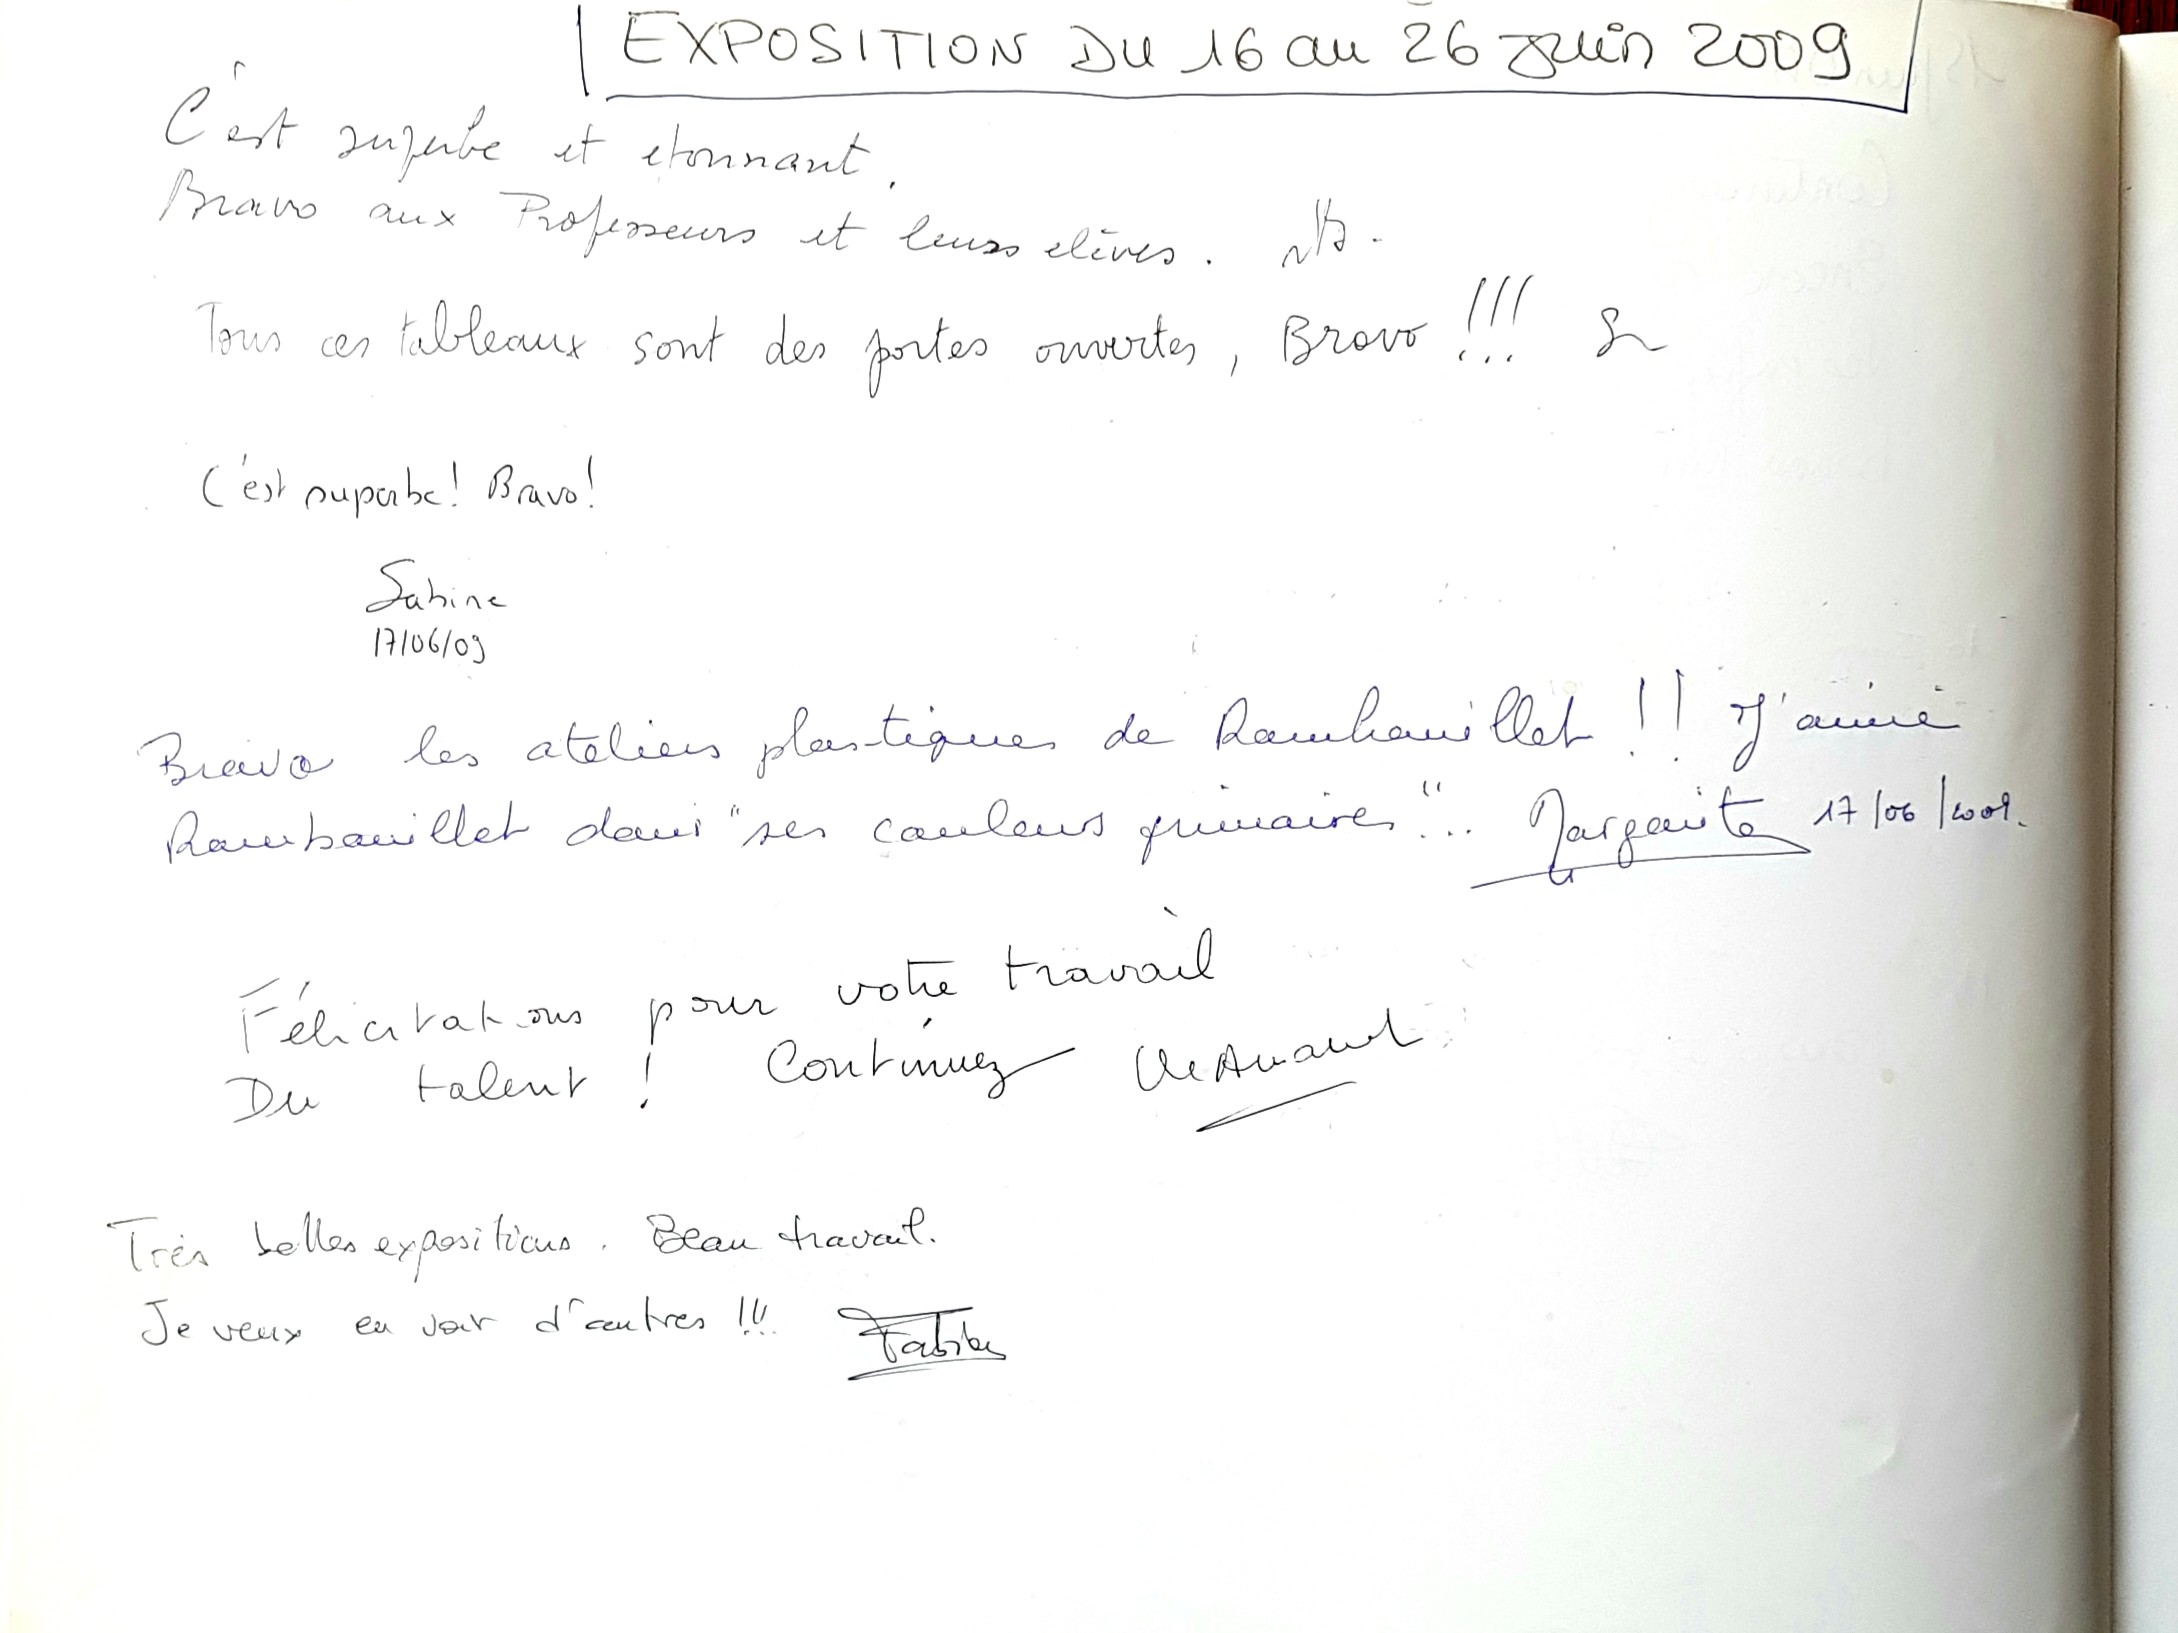 EXPOSITION DU 16 au 26 Juin 2009
C'est superbe et etonnant.
Bravo aux Professeurs et leurs elèves.
Tous ces tableaux sont des portes ouvertes, Bravo !!!
C'est superbe! Bravo!
Sabine
17/06/09
Bravo les ateliers plastiques de Rambouillet !! J'aime
Rambouillet dans "ses couleurs primaires"... Margarita 17/06/2009.
Félicitations pour votre travail
Du talent ! Continuez
Très belles expositions. Beau travail.
Je veux en voir d'autres !!! Fabien